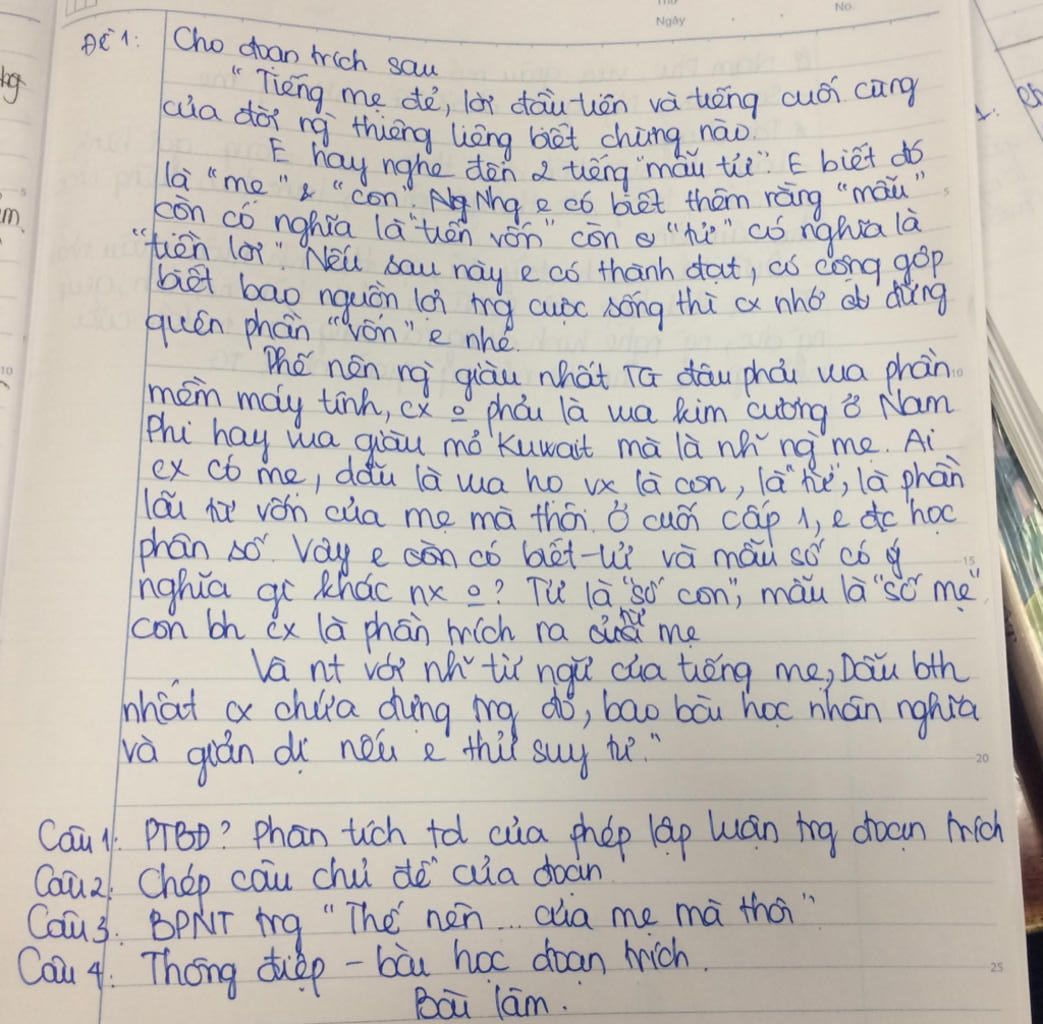 Thứ
Ngày
No.
Đề 1: Cho đoạn trích sau
"Tiếng mẹ đẻ, lời đầu tiên và tiếng cuối cùng
của đời ng` thiêng liêng biết chừng nào.
E hay nghe đến 2 tiếng "mẫu tử". E biết đó
là "mẹ" & "con" Nhg e có biết thêm rằng "mẫu"
còn có nghĩa là "tiền vốn" còn "tử" có nghĩa là
"tiền lời". Nếu sau này e có thành đạt, có công góp
biết bao nguồn lợi trg cuộc sống thì cx nhớ đừng
quên phần "vốn" e nhé.
Thế nên ng` giàu nhất TG đâu phải vua phần
mềm máy tính, cx o phải là vua kim cương ở Nam
Phi hay vua giàu mỏ Kuwait mà là nh~ ng` mẹ. Ai
cx có mẹ, dẫu là vua họ vx là con, là "tử", là phần
lãi từ vốn của mẹ mà thôi. Ở cuối cấp 1, e đc học
phân số. Vậy e còn có biết tử và mẫu số có ý
nghĩa gì khác nx o? Tử là "số con", mẫu là "số mẹ"
con bh cx là phần trích ra từ mẹ
Và nt với nh~ từ ngữ của tiếng mẹ, Dẫu bth
nhất cx chứa đựng trg đó, bao bài học nhân nghĩa
và giản dị nếu e thử suy tư."
Câu 1: PTBĐ? Phân tích td của phép lập luận trg đoạn trích
Câu 2: Chép câu chủ đề của đoạn
Câu 3: BPNT trg "Thế nên ... của mẹ mà thôi"
Câu 4: Thông điệp - bài học đoạn trích.
Bài làm.